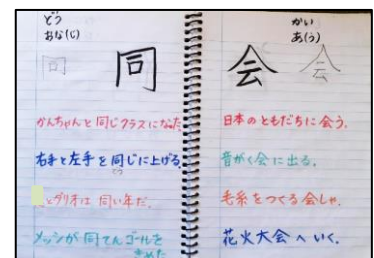 どう
おな(じ)
同 同
かんちゃんと同じクラスになった。
右手と左手を同じに上げる。
どう
とグリオは同い年だ。
メッシが同てんゴールを
きめた
かい
あ(う)
会 会
日本のともだちに会う。
音がく会に出る。
毛糸をつくる会しゃ。
花火大会へいく。